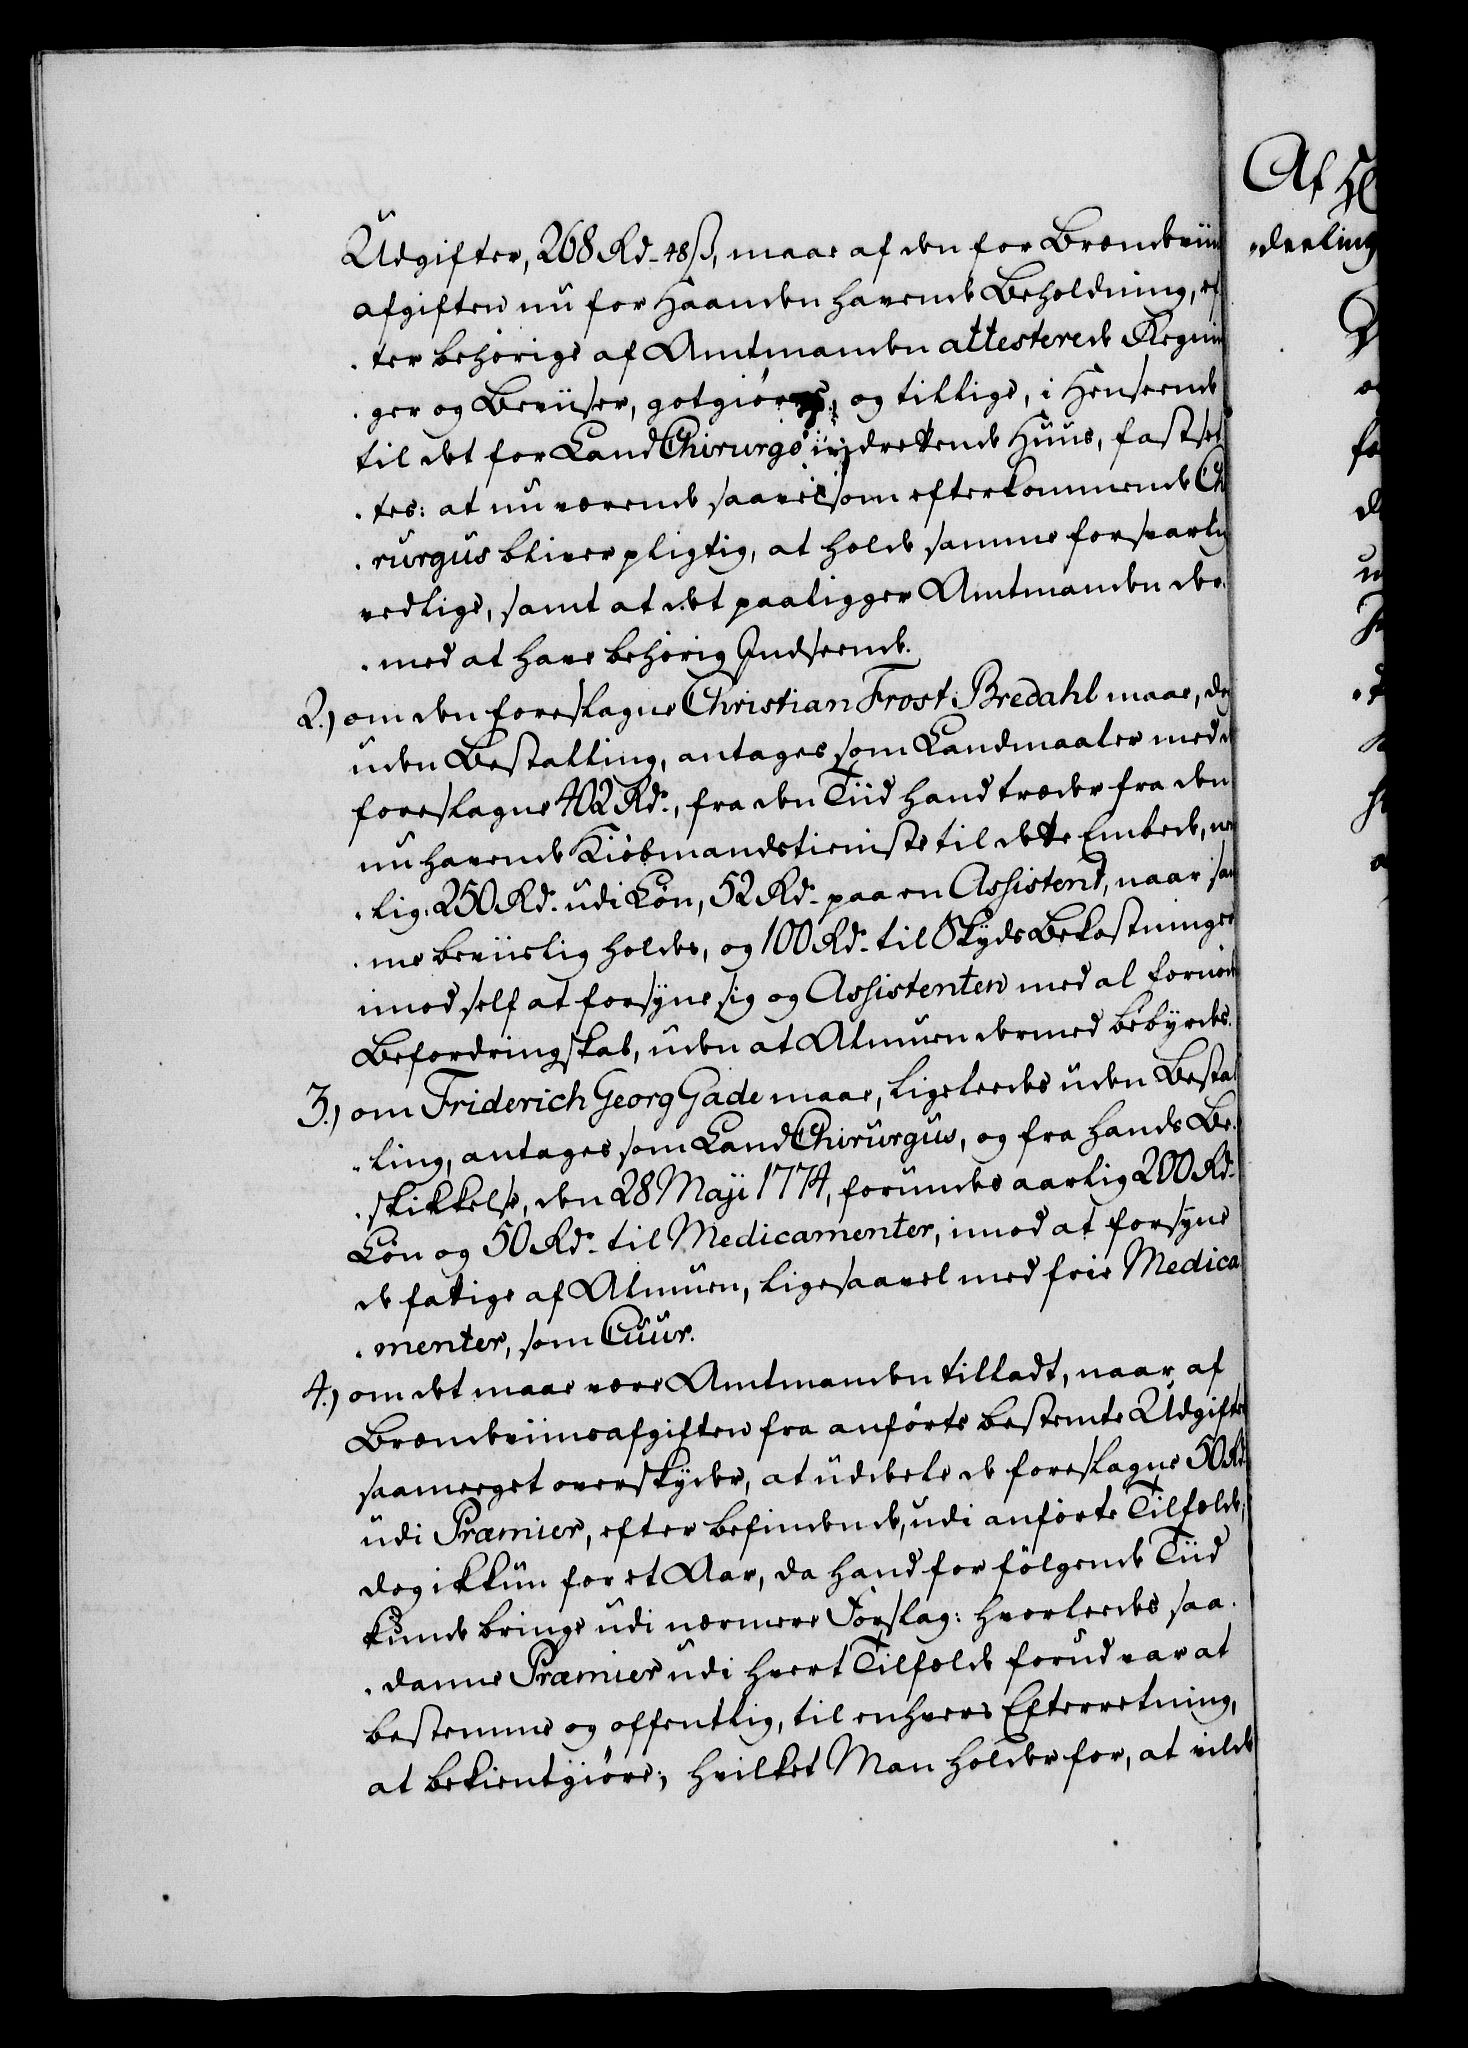 Udgifter, 268 Rd. 48 ß, maae af den for Brændeviin
afgiften nu for Haanden havende Beholdning, ef
ter behørige af Amtmanden attesterede Regnin
ger og Beviiser, gotgiøres, og tillige, i Henseende
til det for Land Chirurgo indrettende Huus, fastset
tes: at nuværende saavelsom efterkommende Chi
rurgus bliver pligtig, at holde samme forsvarlig
vedlige, samt at det paaligger Amtmanden der
med at have behørig Indseende.
2.) om den foreslagne Christian Frost Bredahl maae, dog
uden Bestalling, antages som Landmaaler med de
foreslagne 402 Rd., fra den Tiid hand træder fra den
nu havende Kiøbmandstieniste til dette Embede, nem
lig 250 Rd. udi Løn, 52 Rd. paa en Assistent, naar sam
me beviislig holdes, og 100 Rd. til Skyds Bekostninger
imod self at forsyne sig og Assistenten med al fornøden
Befordringskab, uden at Almuen dermed bebyrdes.
3.) om Friderich Georg Gade maae, ligeleedes uden Bestal
ling, antages som Land Chirurgus, og fra hands Be
skikkelse, den 28 Maji 1774, forundes aarlig 200 Rd.
Løn og 50 Rd. til Medicamenter, imod at forsyne
de fattige af Almuen, ligesaavel med frie Medica
menter, som Cuur.
4.) om det maae være Amtmanden tilladt, naar af
Brændeviinsafgiften fra anførte bestemte Udgifter
saameget overskyder, at uddele de foreslagne 50 Rd.
udi Præmier, efter befindende, udi anførte Tilfælde,
dog ikkun for et Aar, da hand for følgende Tiid
kunde bringe udi nærmere Forslag: hvorleedes saa
danne Præmier udi hvert Tilfælde forud var at
bestemme og offentlig, til enhvers Efterretning,
at bekientgiøre; hvilket Man holder for, at vilde
Af
deeling